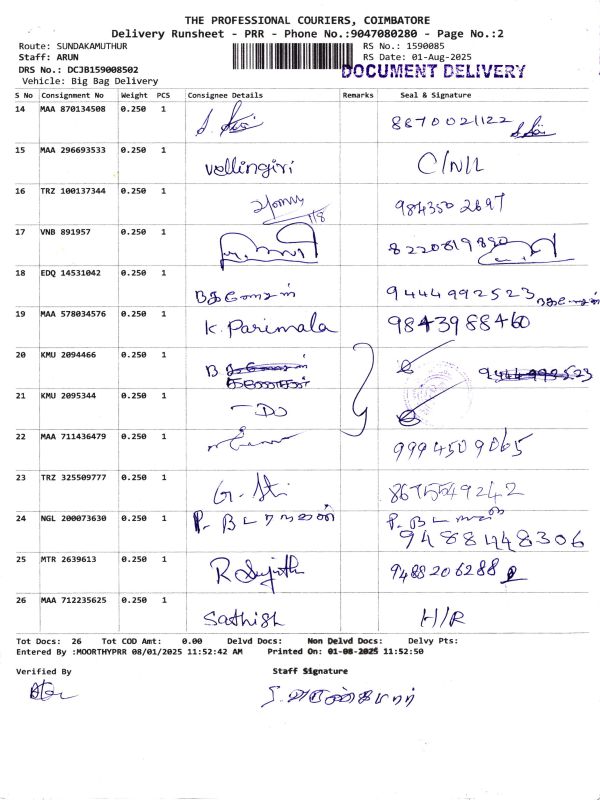 THE PROFESSIONAL COURIERS, COIMBATORE
Delivery Runsheet - PRR - Phone No.:9047080280 - Page No.:2
Route: SUNDAKAMUTHUR RS No.: 1590085
Staff: ARUN RS Date: 01-Aug-2025
DRS No.: DCJB159008502 DOCUMENT DELIVERY
Vehicle: Big Bag Delivery
S No Consignment No Weight PCS Consignee Details Remarks Seal & Signature
14 MAA 870134508 0.250 1 8870021122
15 MAA 296693533 0.250 1 Vellingiri C/NIL
16 TRZ 100137344 0.250 1 1/8 984350 2697
17 VNB 891957 0.250 1 8220819890
18 EDQ 14531042 0.250 1 9444992523
19 MAA 578034576 0.250 1 K. Parimala 9843988460
20 KMU 2094466 0.250 1 9444992523
21 KMU 2095344 0.250 1 -DO
22 MAA 711436479 0.250 1 9994509065
23 TRZ 325509777 0.250 1 8675549242
24 NGL 200073630 0.250 1 9488448306
25 MTR 2639613 0.250 1 R Sujith 9488206288
26 MAA 712235625 0.250 1 Sathish H/R
Tot Docs: 26 Tot COD Amt: 0.00 Delvd Docs: Non Delvd Docs: Delvy Pts:
Entered By :MOORTHYPRR 08/01/2025 11:52:42 AM Printed On: 01-08-2025 11:52:50
Verified By Staff Signature